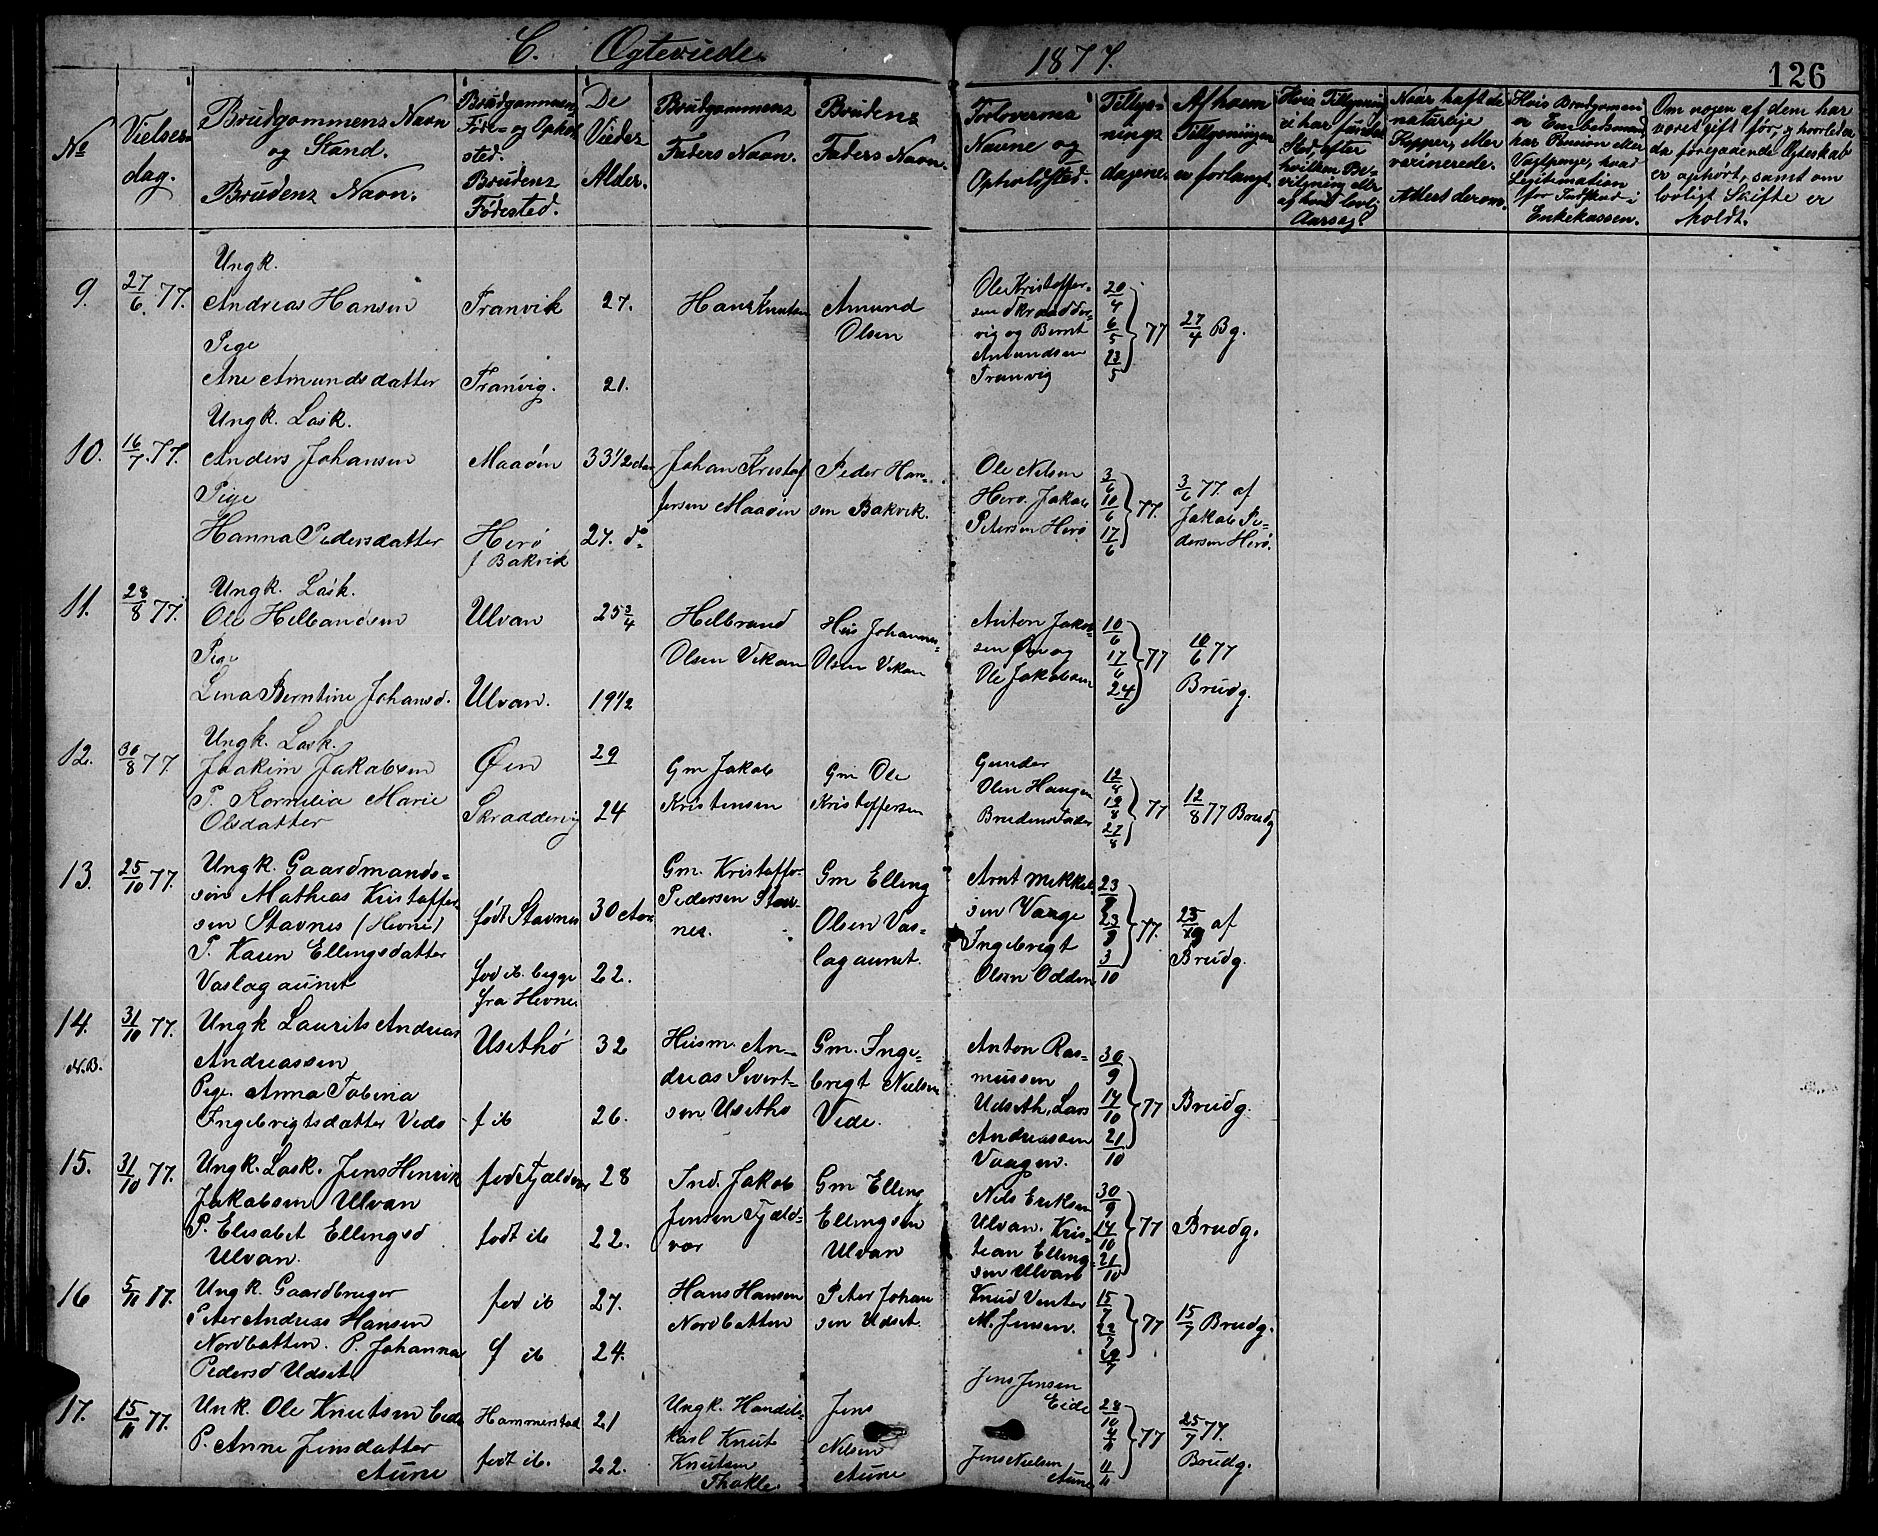 C. Ægteviede. 1877. 126
№
Vielses-
dag.
Brudgommens Navn
og Stand.
Brudens Navn.
Brudgommens
Føde- og Opholds
sted.
Brudens
Fødested.
De
Viedes
Alder.
Brudgommens
Faders Navn.
Brudens
Faders Navn.
Forlovernes
Navne og
Opholdssted.
Tillys-
nings
dagene.
Af hvem
Tillysningen
er forlangt.
Hvis Tillysning
ei har fundet
Sted, efter
hvilken Be-
vilgning eller
af hvad lovlig
Aarsag?
Naar haft de
naturlige
Kopper, eller
vaxinerede.
Attest derom.
Hvis Brudgommen
er Embedsmand,
har Pension eller
Vartpenge, hvad
Legitimation
for Indskud i
Enkekassen.
Om nogen af dem har
været gift før, og hvorledes
da foregaaende Ægteskab
er ophørt, samt om
lovligt Skifte er
holdt.
9. 27/6 77.
Ungk.
Andreas Hansen
Pige
Ane Amundsdatter
Tranvik
Tranvig.
27.
21.
Hans Knutsen
Amund
Olsen
Ole Kristoffer-
sen Skraaddervig og Bernt
Amundsen
Tranvig
20/4
6/5
13/5
77
27/4 Bg.
10. 16/7 77.
Ungk. Losk.
Anders Johansen
Pige
Hanna Pedersdatter
Maaøen
Herø
f Bakvik
33 1/2
27. do
Johan Kristof
fersen Maaøen
Peder Han-
sen Bakvik.
Ole Nelsen
Herø. Jakob
Petersen Herø
3/6
10/6
17/6
77.
3/6 77. af
Jakob Pe-
dersen Herø.
11. 28/8 77.
Ungk. Losk.
Ole Helbandsen
Pige
Lina Berntine Johansd.
Ulvan
Ulvan.
25 3/4
19 1/2
Helbrand
Olsen Vikan
Hus Johannes
Olsen Vikan
Anton Jakob-
sen Øen og
Ole Jakobsen
10/6
17/6
24
77
10/6 77
Brudg.
12. 30/8 77.
Ungk. Losk.
Joakim Jakobsen
P. Kornelia Marie
Olsdatter
Øen
Skraddervig
29
24
Gm Jakob
Kristensen
Gm Ole
Kristoffersen
Gunder
Olsen Haugen
Brudens Fader
12/8
19/8
27/8
77
12/8 77 Brudg
13. 25/10 77.
Ungk. Gaardmands-
søn Mathias Kristoffer
sen Stavnes (Hevne)
P. Karen Ellingsdatter
Vaslagaunet
født Stavnes
fød ib. begge
fra Hevne
30
22.
Gm. Kristoffer
Pedersen Stav-
nes.
Gm Elling
Olsen Vas-
lagaunet.
Arnt Mikkel
sen Vaage
Ingebrigt
Olsen Odden
23/9
3/10
77.
af
Brudg.
14. 31/10 77.
N.B.
Ungk Laurits Andreas
Andreassen
Pige. Anna Tobina
Ingebrigtsdatter Vedø
Usethø
f ib
32
26.
Husm. An-
dreas Sivert-
sen Usethø
Gm. Inge-
brigt Nielsen
Vede.
Anton Ras-
mussen
Udseth, Lars
Andreassen
Vaagen.
30/9
14/10
21/10
77
Brudg.
15. 31/10 77.
Ungk. Losk. Jens Henrik
Jakobsen Ulvan
P. Elisabet Ellingsd
Ulvan.
født Fjældvær
født ib
28
22.
Ind. Jakob
Jensen Fjæld-
vær
Gm Elling
Ellingsen
Ulvan
Nils Eriksen
Ulvan. Kris-
tian Elling-
sen Ulvan
30/9
14/10
21/10
77
Brudg.
16 5/11 17.
Ungk. Gaardbruger
Peter Andreas Hansen
Nordbotten. P. Johanna
Pedersd Udset
fød ib
f ib
27.
24.
Hans Hansen
Nordbotten
Peter Johan
sen Udset.
Knud Venter
M. Jensen.
15/7
22/7
29/7
77
15/7 Brudg.
17. 15/11 77.
Unk. Ole Knutsen Eide
P. Anne Jensdatter
Aune
Hammerstad
født ib.
21
22.
Ungk. Handels-
karl Knut
Knutsen
Jens
Nilsen
Aune
Jens Jensen
Eide
Jens Nielsen
Aune
28/10
4/11
11/11
77
25/7 77.
Brudg.